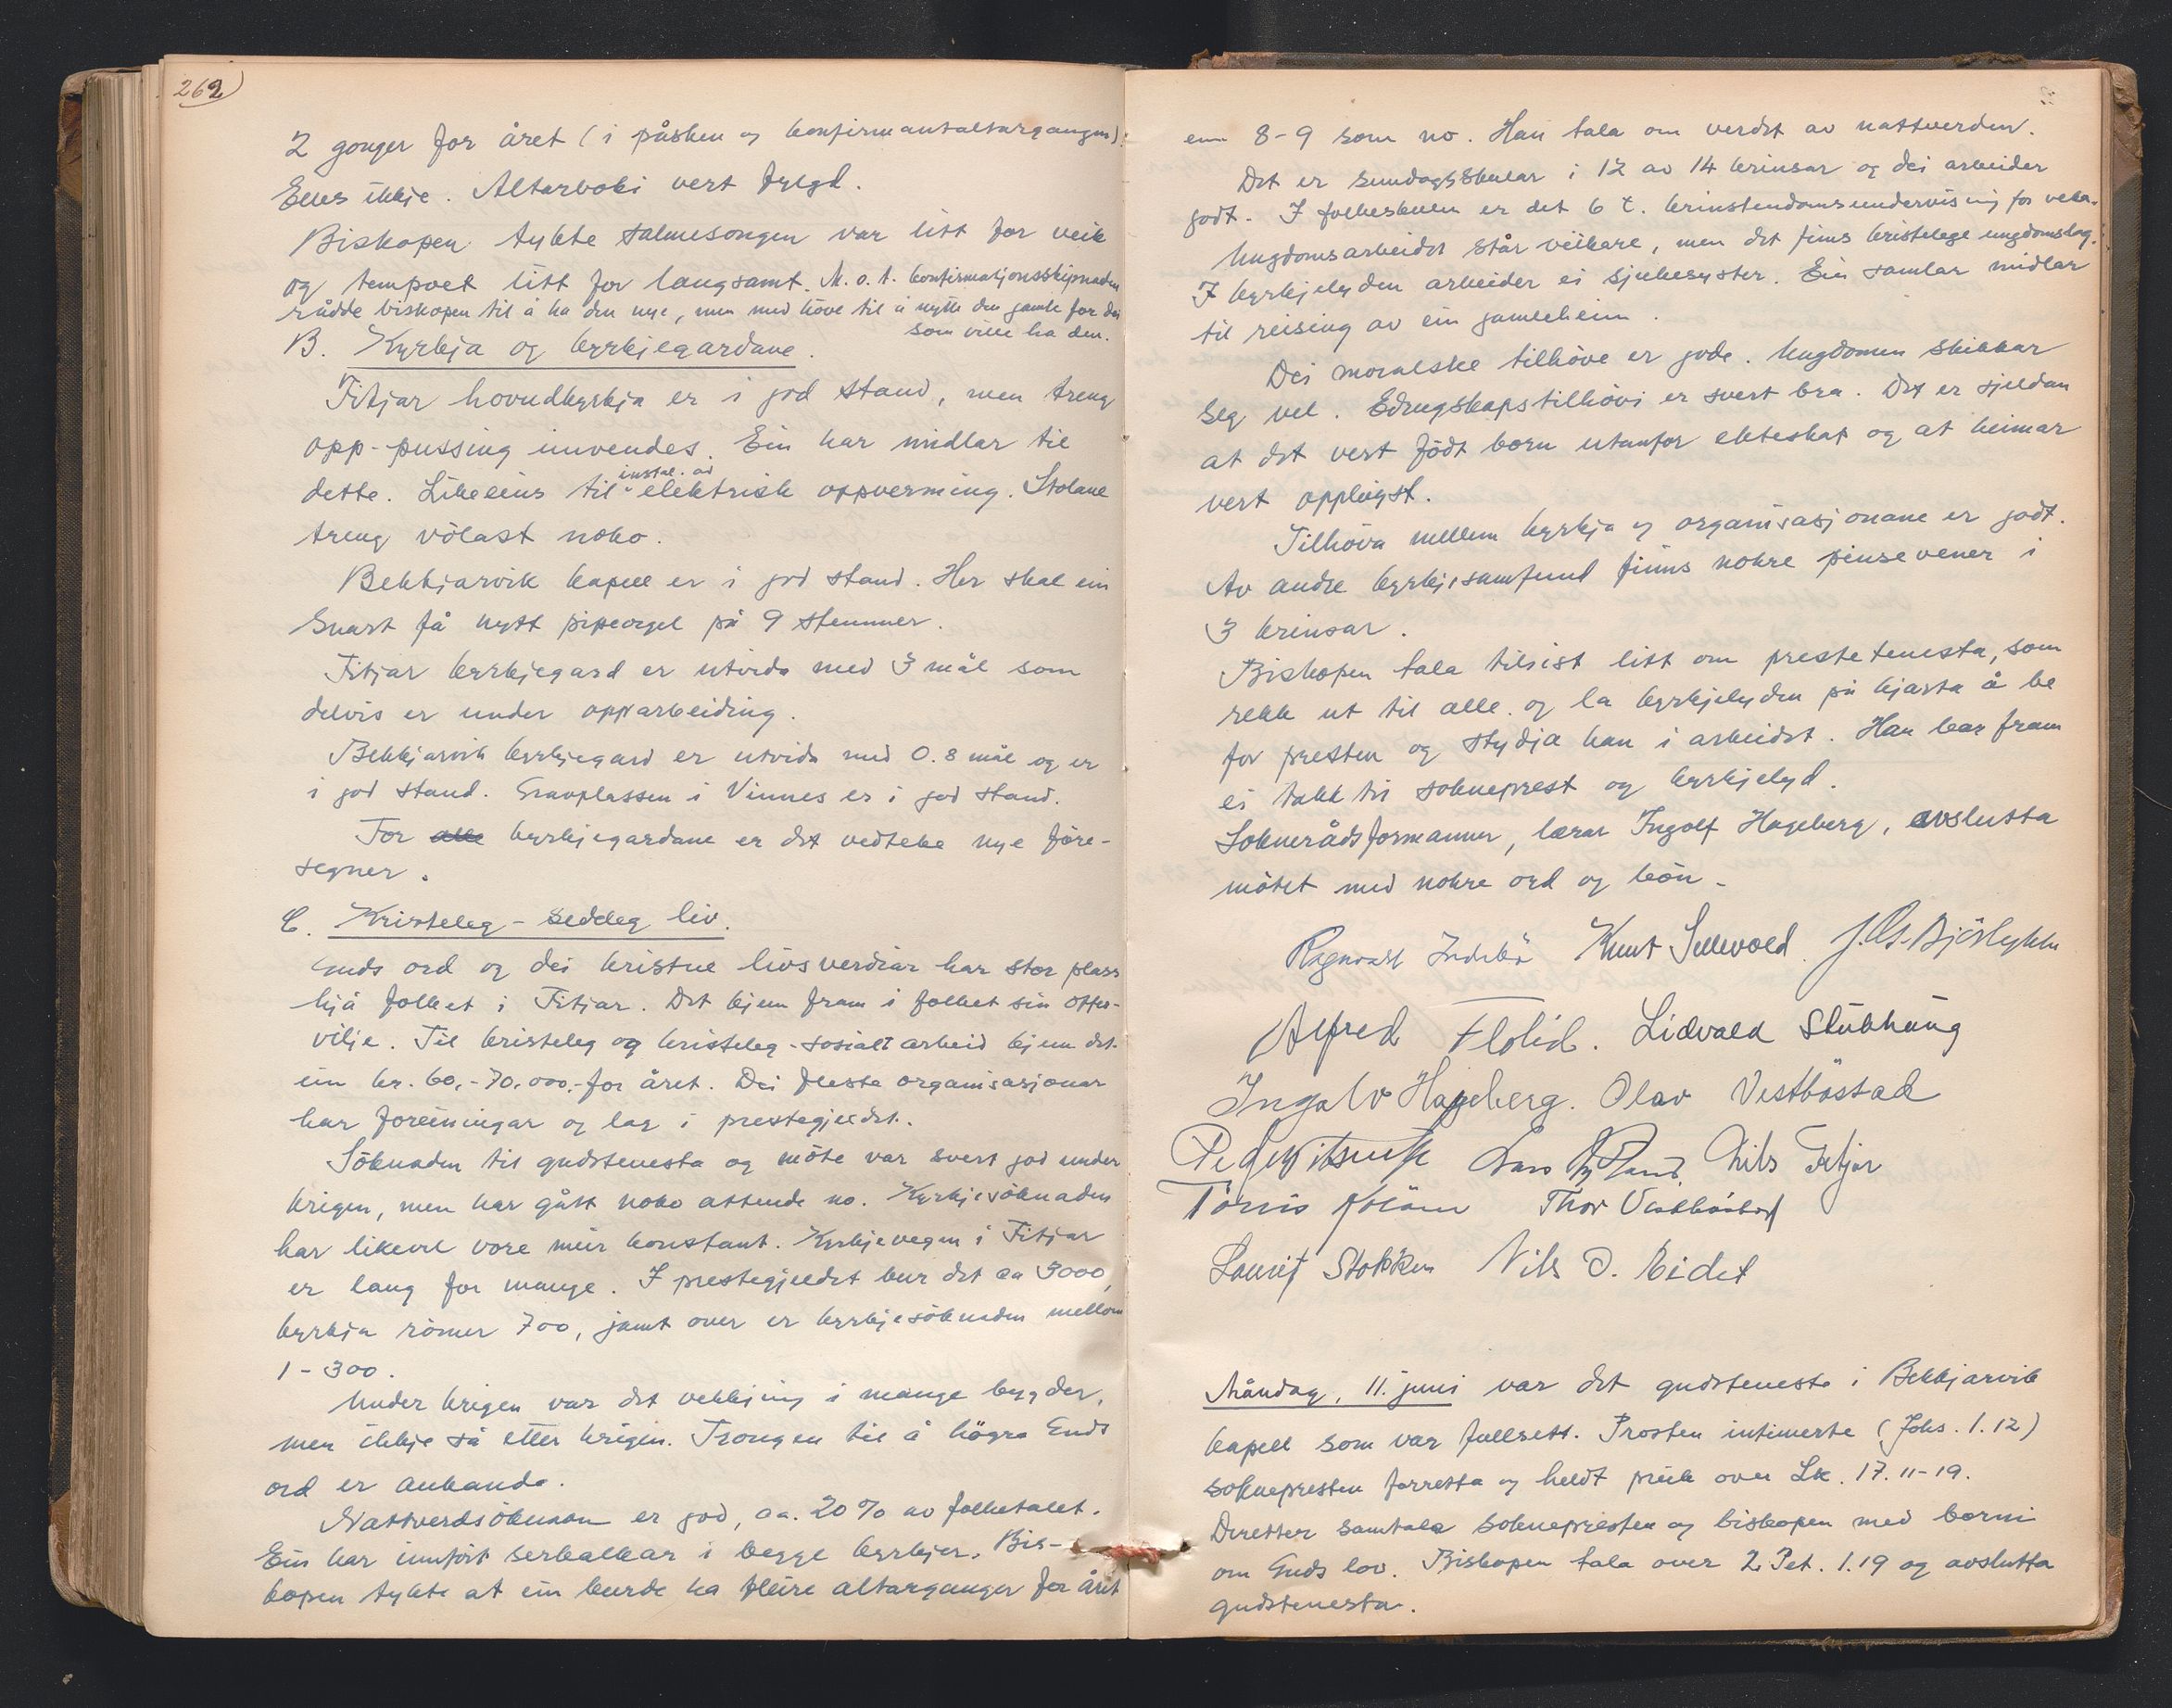 262)
2 gonger for året (i påsken og konfirmantaltargangen).
Elles ikkje. Altarboki vert fylgd.
Biskopen tykte salmesongen var litt for veik
og tempoet litt for langsamt. M.o.t. konfirmasjonsskipnaden
rådde biskopen til å ha den nye, men med höve til å nytte den gamle for dei
som ville ha den.
B. Kyrkja og kyrkjegardane.
Fitjar hovudkyrkja er i god stand, men treng
opp-pussing innvendes. Ein har midlar til
dette. Likeeins til instal. av elektrisk oppverming. Stolane
treng völast noko.
Bekkjarvik kapell er i god stand. Her skal ein
snart få nytt pipeorgel på 9 stemmer.
Fitjar kyrkjegard er utvida med 3 mål som
delvis er under opparbeiding.
Bekkjarvik kyrkjegard er utvida med 0.8 mål og er
i god stand. Gravplassen i Vinnes er i god stand.
For alle kyrkjegardane er det vedteke nye före-
segner.
C. Kristeleg-seddeg liv.
Guds ord og dei kristne livsverdiar har stor plass
hjå folket i Fitjar. Det kjem fram i folket sin offer-
vilje. Til kristeleg og kristeleg-sosialt arbeid kjem det
inn kr. 60,-70,000,- for året. Dei fleste organisasjonar
har foreiningar og lag i prestegjeldet.
Söknaden til gudstenesta og möte var svert god under
krigen, men har gått noko attende no. Kyrkjesöknaden
har likevel vore meir konstant. Kyrkjevegen i Fitjar
er lang for mange. I prestegjeldet bur det ca 3000,
kyrkja römer 700, jamt over er kyrkjesöknaden mellom
1-300.
Under krigen var det vekkjing i mange bygder,
men ikkje så etter krigen. Trongen til å högra Guds
ord er aukande.
Nattverdsöknaen er god, ca. 20% av folketalet.
Ein har innfört serkalkar i begge kyrkjer. Bis-
kopen tykte at ein burde ha fleire altarganger for året
enn 8-9 som no. Han tala om verdet av nattverden.
Det er sundagsskular i 12 av 14 krinsar og dei arbeider
godt. I folkeskulen er det 6 t. kristendomsundervising for veka.
Ungdomsarbeidet står veikare, men det finns kristelege ungdomslag.
I kyrkjelyden arbeider ei sjukesyster. Ein samlar midlar
til reising av ein gamleheim.
Dei moralske tilhöve er gode. Ungdomen skikkar
seg vel. Edrugskapstilhövi er svert bra. Det er sjeldan
at det vert födt born utanfor ekteskap og at heimar
vert opplöyst.
Tilhöva mellom kyrkja og organisasjonane er godt.
Av andre kyrkjesamfund finns nokre pinsevener i
3 krinsar.
Biskopen tala tilsist litt om prestetenesta, som
rekk ut til alle og la kyrkjelyden på hjarta å be
for presten og stydja han i arbeidet. Han bar fram
ei takk til sokneprest og kyrkjelyd.
Soknerådsformannen, lærar Ingolf Hageberg, avslutta
mötet med nokre ord og bön.
Ragnvald Indebö Knut Sellevold. J. Ol. Björlykke
Alfred Flolid. Lidvald Stubhaug
Ingolv Hageberg. Olav Vestböstad
Nils Fitjar
Tönnes Thor Vestböstad
Laurit Stokken Nils O. Eidet
Måndag, 11. juni var det gudsteneste i Bekkjarvik
kapell som var fullsett. Prosten intimerte (Johs. 1.12)
soknepresten forretta og heldt preik over Lk. 17.11-19.
Deretter samtala soknepresten og biskopen med borni
om Guds lov. Biskopen tala over 2. Pet. 1.19 og avslutta
gudstenesta.